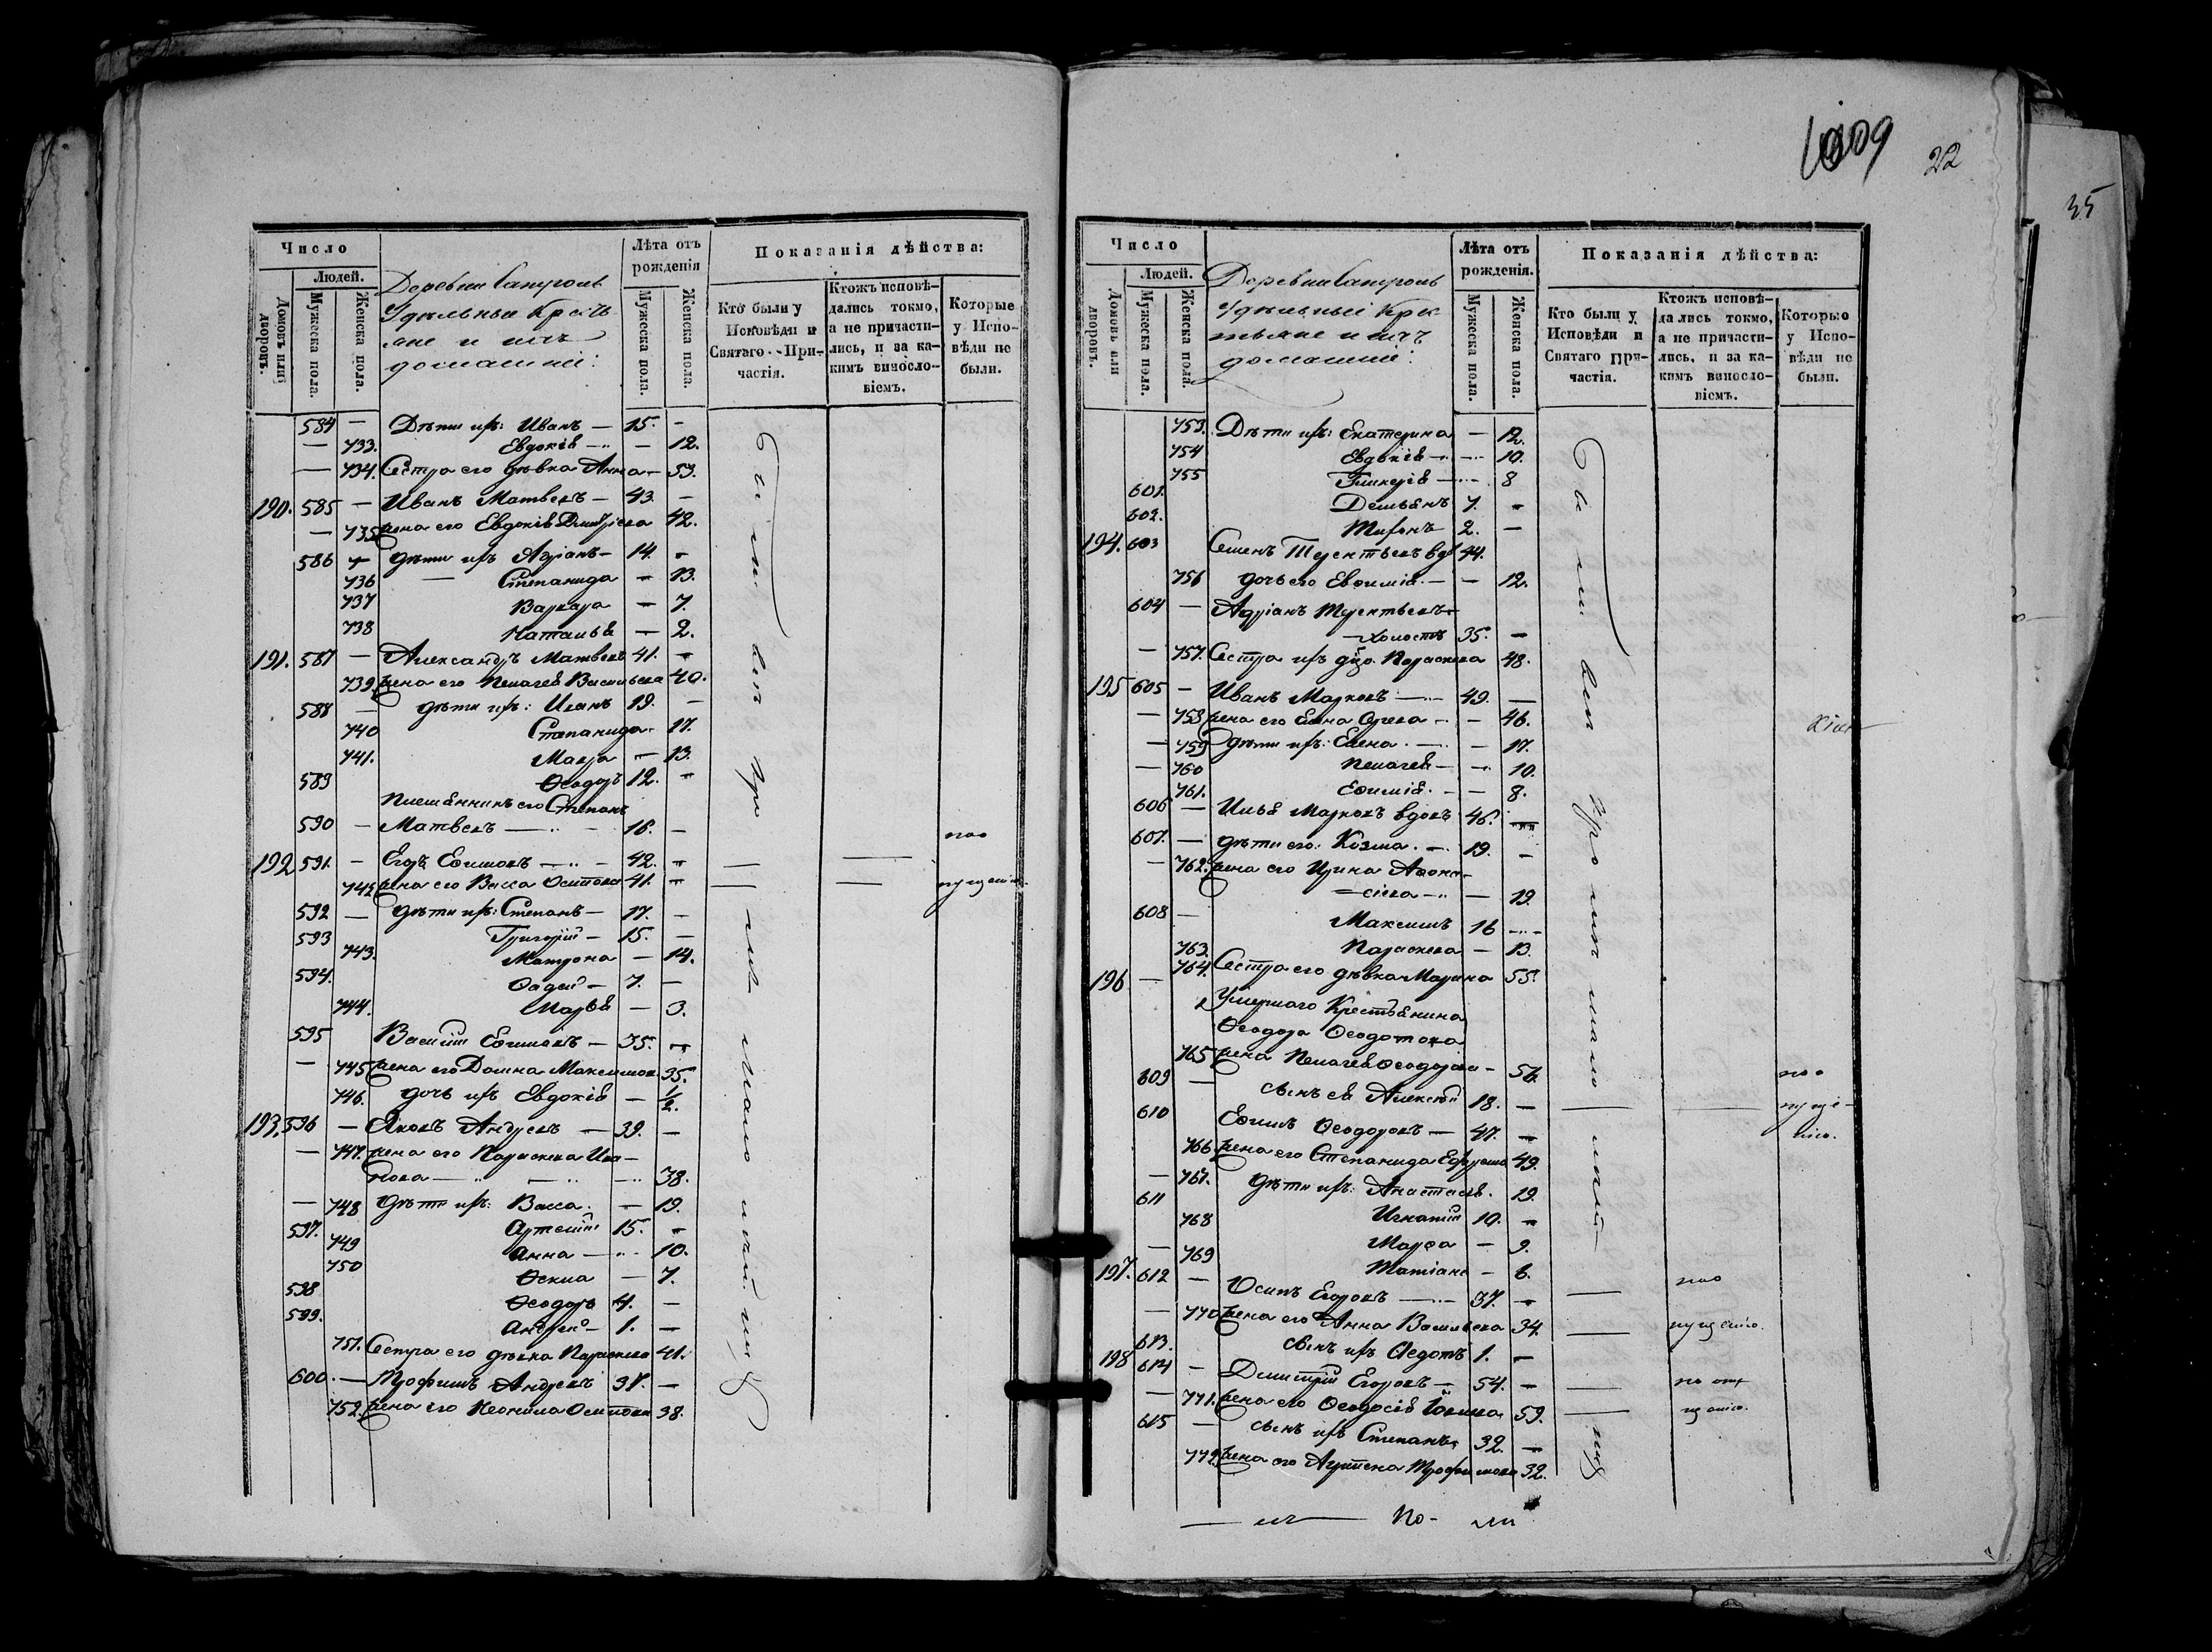 1009
22
35
Число
Людей.
Домовъ или дворовъ.
Мужеска пола.
Женска пола.
Деревни
Удѣльные Кресть-
яне и ихъ
домашніе:
Лѣта отъ рожденія
Мужеска пола.
Женска пола.
Показанія дѣйства:
Кто были у Исповѣди и Святаго При-частія.
Ктожъ исповѣ-дались токмо, а не причасти-лись, и за ка-кимъ винословіемъ.
Которые у Испо-вѣди не были.
584 — Дѣти ихъ: Иванъ — 15. -
— 733. Евдокія — — 12.
— 734. Сестра его дѣвка Анна — 53.
190. 585 — Иванъ Матвеевъ — 43. —
— 735 жена его Евдокія Димитріева 42.
586 — дѣти ихъ Адріанъ — 14. —
736 — Степанида — 13.
737 Варвара — 7.
738 Наталья — 2.
191. 587 — Александръ Матвеевъ 41. —
739. жена его Пелагея Васильева 40.
588 — дѣти ихъ: Иванъ 19. —
740 Степанида 17.
741. Мавра — 13.
589 Ѳеодоръ 12. —
Племянникъ его Степанъ
590 — Матвеевъ — 16. —
192 591. — Егоръ Ефимовъ — 42. —
742 жена его Васса Осипова 41. —
592 — дѣти ихъ: Степанъ — 17. —
593 Григорій — 15. —
743. Матрона — 14.
594. Фадей — 7. —
744. Марья — 3.
595 Василій Ефимовъ — 35. —
— 745 жена его Домна Максимова 35.
746. дочь ихъ Евдокія — 1/2.
193. 596 — Яковъ Андреевъ — 39. —
— 747. жена его Параскева Ива-
нова — 38.
— 748 дѣти ихъ: Васса. — 19.
597. Артемій 15. —
749 Анна — 10.
750 Ѳекла — 7.
598 Ѳеодоръ 4. —
599. Андрей — 1. —
751. Сестра его дѣвка Параскева 41.
600. — Трофимъ Андреевъ 37. —
752. жена его Неонила Осипова 38.
по о
пущенію.
Число
Людей.
Домовъ или дворовъ.
Мужеска пола.
Женска пола.
Деревни
Удѣльные Крес-
тьяне и ихъ
домашніе:
Лѣта отъ рожденія.
Мужеска пола.
Женска пола.
Показанія дѣйства:
Кто были у Исповѣди и Святаго При-частія.
Ктожъ исповѣ-дались токмо, а не причасти-лись, и за ка-кимъ винословіемъ.
Которые у Испо-вѣди не были.
753. Дѣти ихъ: Екатерина — 12.
754 Евдокія — 10.
755 Гликерія — 8
601. Демьянъ 7. —
602. Тифонъ 2. —
194. 603 Семенъ Терентьевъ вд. 44.
756 дочь его Евфимія — — 12.
604 — Адріанъ Терентьевъ
холостъ 35. —
— 757. Сестра ихъ дѣв. Параскева 48.
195 605 — Иванъ Марковъ — 49. —
— 758 жена его — 46.
— 759 дѣти ихъ: Елена. — 17.
— 760 Пелагея — 10.
761. Ефимія. — 8.
606 — Илья Марковъ вдовъ 46. —
607. — дѣти его: Козма. — 19. —
— 762. жена его Ирина Афана-
сіева — 19.
608 — Максимъ 16 —
763. Параскева — 13.
764. Сестра его дѣвка Марина 55.
196 — Умершаго Крестьянина
Ѳеодора Ѳеодотова
765 жена Пелагея Ѳеодорова — 56.
609 — сынъ ея Алексѣй 18. —
610 Ефимъ Ѳеодоровъ — 47. —
766 жена его Степанида Ефремова 49.
— 767. дѣти ихъ: Анастасія. 19.
611 Игнатій 10. —
768 Марфа — 9.
— 769 Татіана — 6.
197. 612 — Осипъ Егоровъ — 37. —
— 770 жена его Анна Васильева 34.
613. сынъ ихъ Ѳедотъ 1. —
198 614 — Димитрій Егоровъ — 54. —
— 771. жена его Ѳеодосія 59.
615 — сынъ ихъ Степанъ 32. —
772. жена его Агрипена Трофимова 32.
по о
пуще-
нію.
по о
пущенію.
по оп
ущенію.